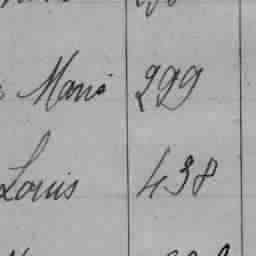 Marie 299
Louis 438